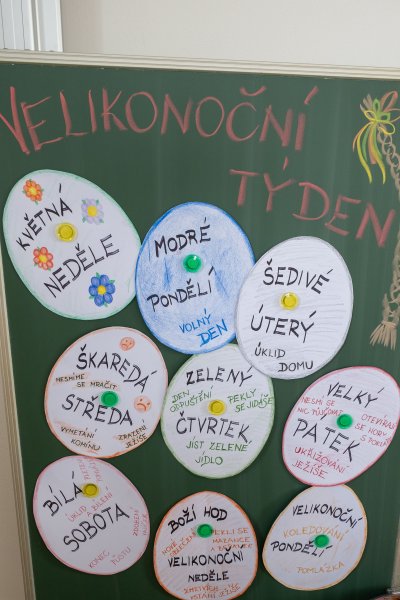 VELIKONOČNÍ
TÝDEN
KVĚTNÁ
NEDĚLE
MODRÉ
PONDĚLÍ
VOLNÝ
DEN
ŠEDIVÉ
ÚTERÝ
ÚKLID
DOMU
ŠKAREDÁ
NESMÍME
SE MRAČIT
STŘEDA
VYMETÁNÍ
KOMÍNŮ
ZRAZENÍ
JEŽÍŠE
ZELENÝ
DEN
ODPUŠTĚNÍ
PEKLY
SE JIDÁŠE
ČTVRTEK
JÍST ZELENÉ
JÍDLO
VELKÝ
NESMÍ SE
NIC PŮJČOVAT
OTEVÍRAJÍ
SE HORY
PÁTEK
UKŘIŽOVÁNÍ
JEŽÍŠE
BÍLÁ
ÚKLID
A BÍLENÍ
SOBOTA
KONEC
PŮSTU
BOŽÍ HOD
NOVÉ
OBLEČENÍ
PEKLI SE
MAZANCE
A BERÁNEK
VELIKONOČNÍ
NEDĚLE
JEŽÍŠE
VELIKONOČNÍ
KOLEDOVÁNÍ
PONDĚLÍ
POMLÁZKA